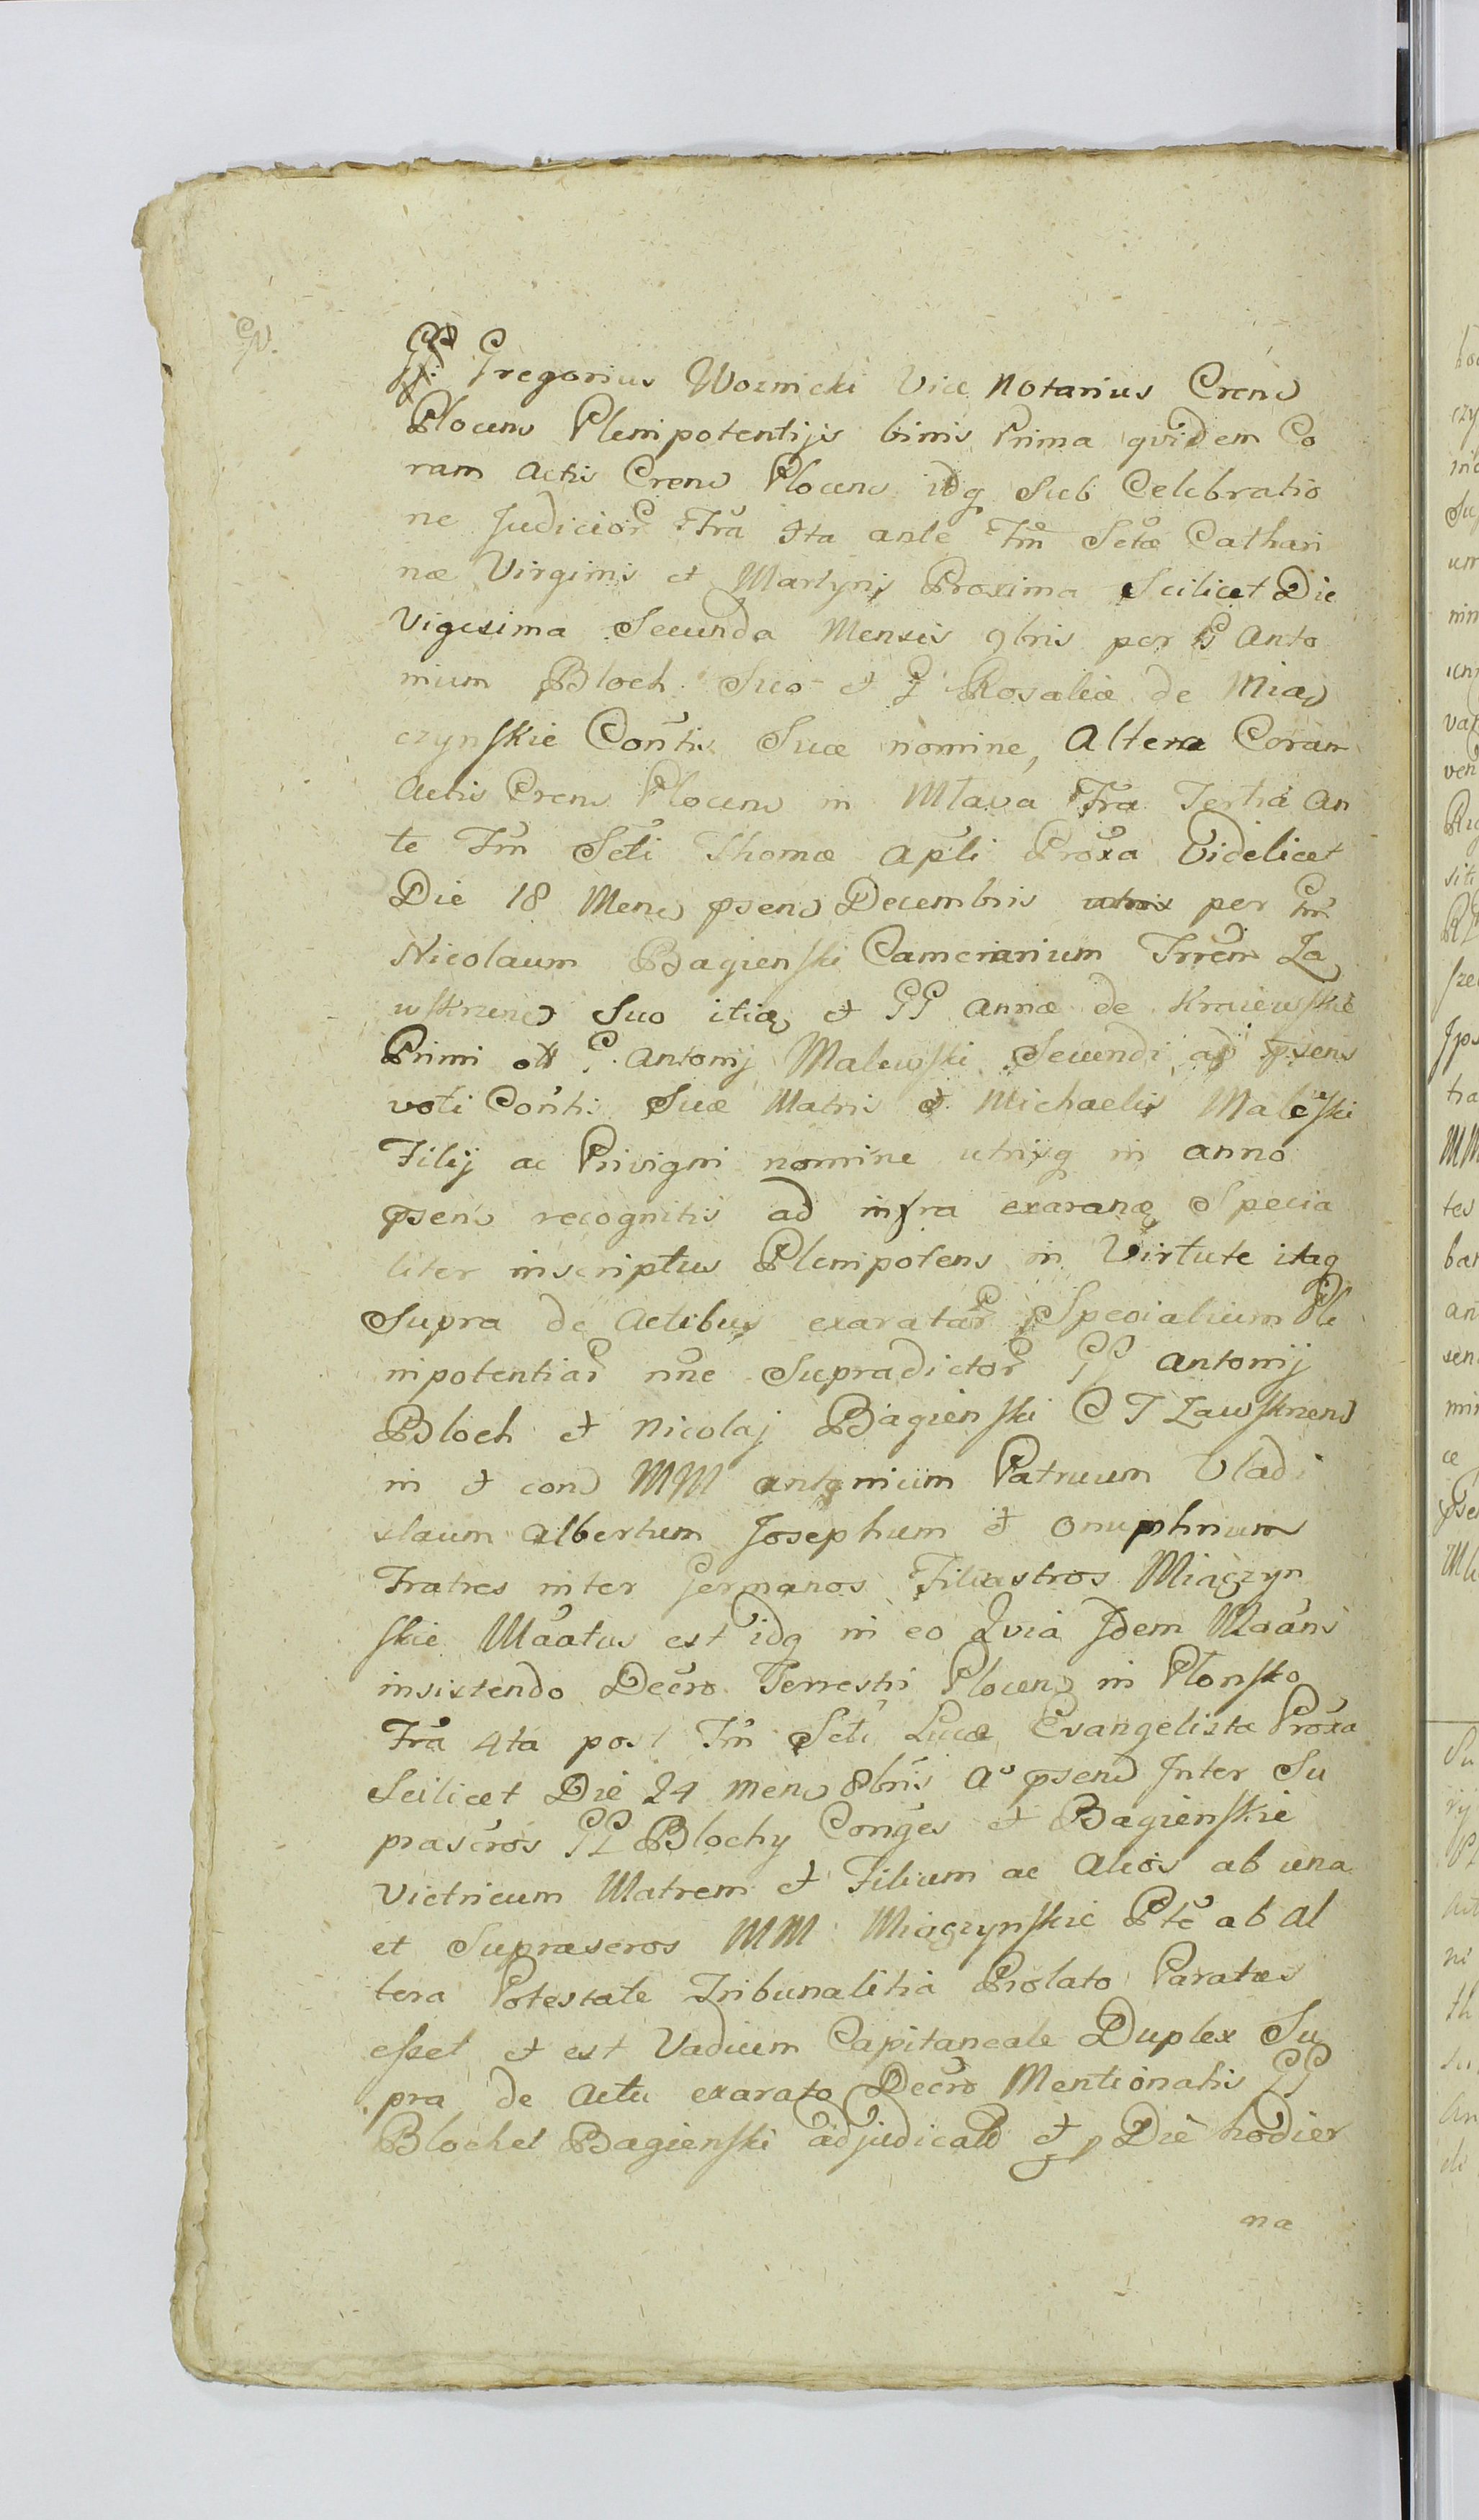 Gregorius Woznicki Vice Notarius Crens
Plocens Plenipotentijs binis Prima qvidem Co
ram Actis Crens Plocens idq Sub Celebratio
ne Judicior Fra 4ta ante Fm Sctæ Cathari
næ Virginis et Martyris Proxima Scilicet Die
Vigesima Secunda Mensis 9bris per G Anto
nium Bloch Suo et G Rosaliæ de Mią
czynskie Contis Suæ nomine, Altera Coram
Actis Crens Plocens in Mlava Fra Tertia An
te Fm Scti Thomæ Apli Proxa Videlicet
Die 18 Mens psens Decembris per Gm
Nicolaum Bagienski Camerarium Trrem Za
wskrzens Suo itiq et GG Annæ de Kraiewskie
Primi olt G. Antonij Malewski Secundi ad psens
voti Contis Suæ Matris et Michaelis Malewski
Filij ac Privigni nomine utrisq in anno
psens recognitis ad infra exaranda Specia
liter inscriptus Plenipotens in Virtute itaq
Supra de Actibus exaratar Specialium Ple
nipotentiar nne Supradictor GG Antonij
Bloch et Nicolaj Bagienski C T Zawskrzens
in et con MM Antonium Patruum Vladi
slaum Albertum Josephum et Onuphrium
Fratres inter Germanos Filiastros Miączyn
skie Maatus est idq in eo Qvia Idem Maans
insistendo Decro Terrestri Plocens in Plonsko
Fra 4ta post Fm Scti Lucæ Evangelista Proxa
Scilicet Die 24 Mens 8bris Ao psens Inter Su
prascros GG Blochy Conges et Bagienskie
Victricum Matrem et Filium ac Alios ab una
et Suprascros MM Miączynskie Pte ab Al
tera Potestate Tribunalitia Prolato Paratus
esset et est Vadium Capitaneale Duplex Su
pra de Actu exarato Decro Mentionatis GG
Bloch et Bagienski adjudicatd et p Die hodier
na